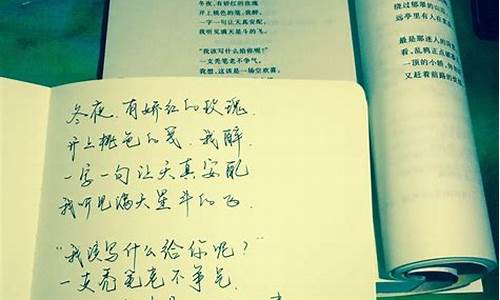 冬夜,有娇红的玫瑰
开上桃色的笺,我醉,
一字一句让天真安配,
我听见满天星斗的飞。
“我该写什么给你呢?”
一支秃笔老不争气,
我想,这该是一场空欢喜。
绕过郁翠的山
远亭里有人在
最是那迷人的
看,乱鸦正点破
一顶的小轿,
又赶着前路的
冬夜,有娇红的玫瑰,
开上桃色的笺,我醉,
一字一句让天真安配
我听见满天星斗的飞.
“我该写什么给你呢?”
一支秃笔老不争气.